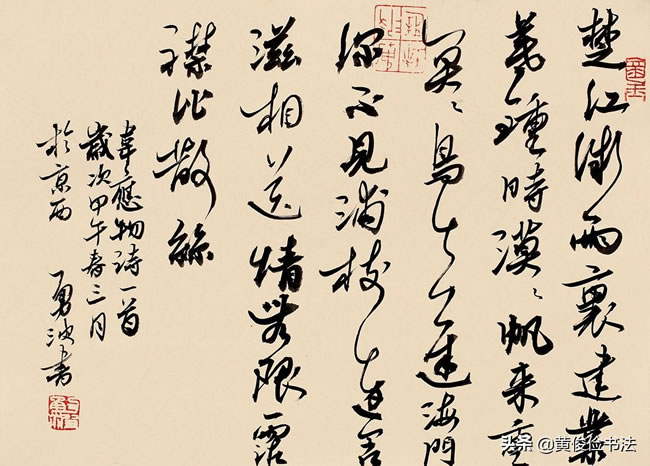 楚江微雨裏建業
暮鍾時漠〻帆来重
冥〻鳥去遲海門
深不見浦樹遠含
滋相送情無限霑
襟比散絲
韋應物詩一首
歲次甲午春三月
於京西 勇波書
头条 @黄俊俭书法